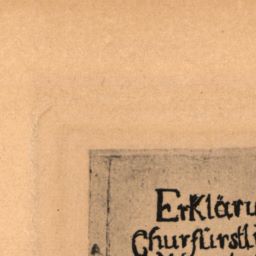 ErKläru
Churfürstli